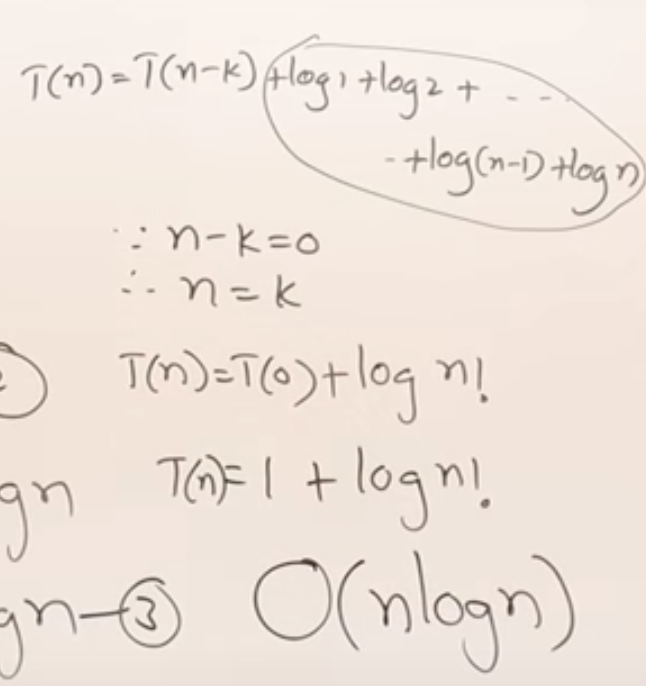 T(n)=T(n-k)+log1+log2+ - - -
-+log(n-1)+log n
∵ n-k=0
∴ n=k
T(n)=T(0)+log n!
gn T(n)=1+log n!
gn-③ O(nlogn)